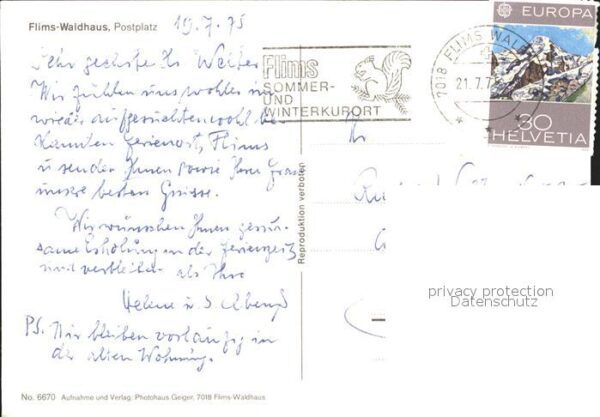 Flims-Waldhaus, Postplatz
19.7.75
Sehr geehrter Hr. Welter
Wir fühlen uns wohler im
wieder aufgesuchten wohl be-
kannten Ferienort, Flims
u senden Ihnen sowie Ihrer Frau
unsere besten Grüsse.
Wir wünschen Ihnen geruh-
same Erholung in der Ferienzeit
und verbleiben als Ihre
Helene u.
PS. Wir bleiben vorläufig in
der alten Wohnung.
No. 6670 Aufnahme und Verlag: Photohaus Geiger, 7018 Flims-Waldhaus
Reproduktion verboten
Flims
SOMMER-
UND
WINTERKURORT
7018 FLIMS WAL
21.7.7
EUROPA
30
HELVETIA
privacy protection
Datenschutz